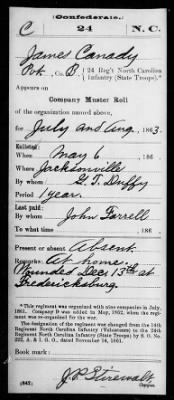 (Confederate.)
C 24 N. C.
James Canady
Pvt., Co. B, 24 Reg't North Carolina
Infantry (State Troops).*
Appears on
Company Muster Roll
of the organization named above,
for July and Aug, 1863.
Enlisted:
When May 6, 186
Where Jacksonville
By whom G. T. Duffy
Period 1 year.
Last paid:
By whom John Farrell
To what time , 186 .
Present or absent Absent
Remarks: At home.
Wounded Dec. 13th at
Fredericksburg.
*This regiment was organized with nine companies in July,
1861. Company P was added in May, 1862, when the regi-
ment was re-organized for the war.
The designation of the regiment was changed from the 14th
Regiment North Carolina Infantry (Volunteers) to the 24th
Regiment North Carolina Infantry (State Troops) by S. O. No.
222, A. & I. G. O., dated November 14, 1861.
Book mark:
J. P. Stirewalt
(642) Copyist.